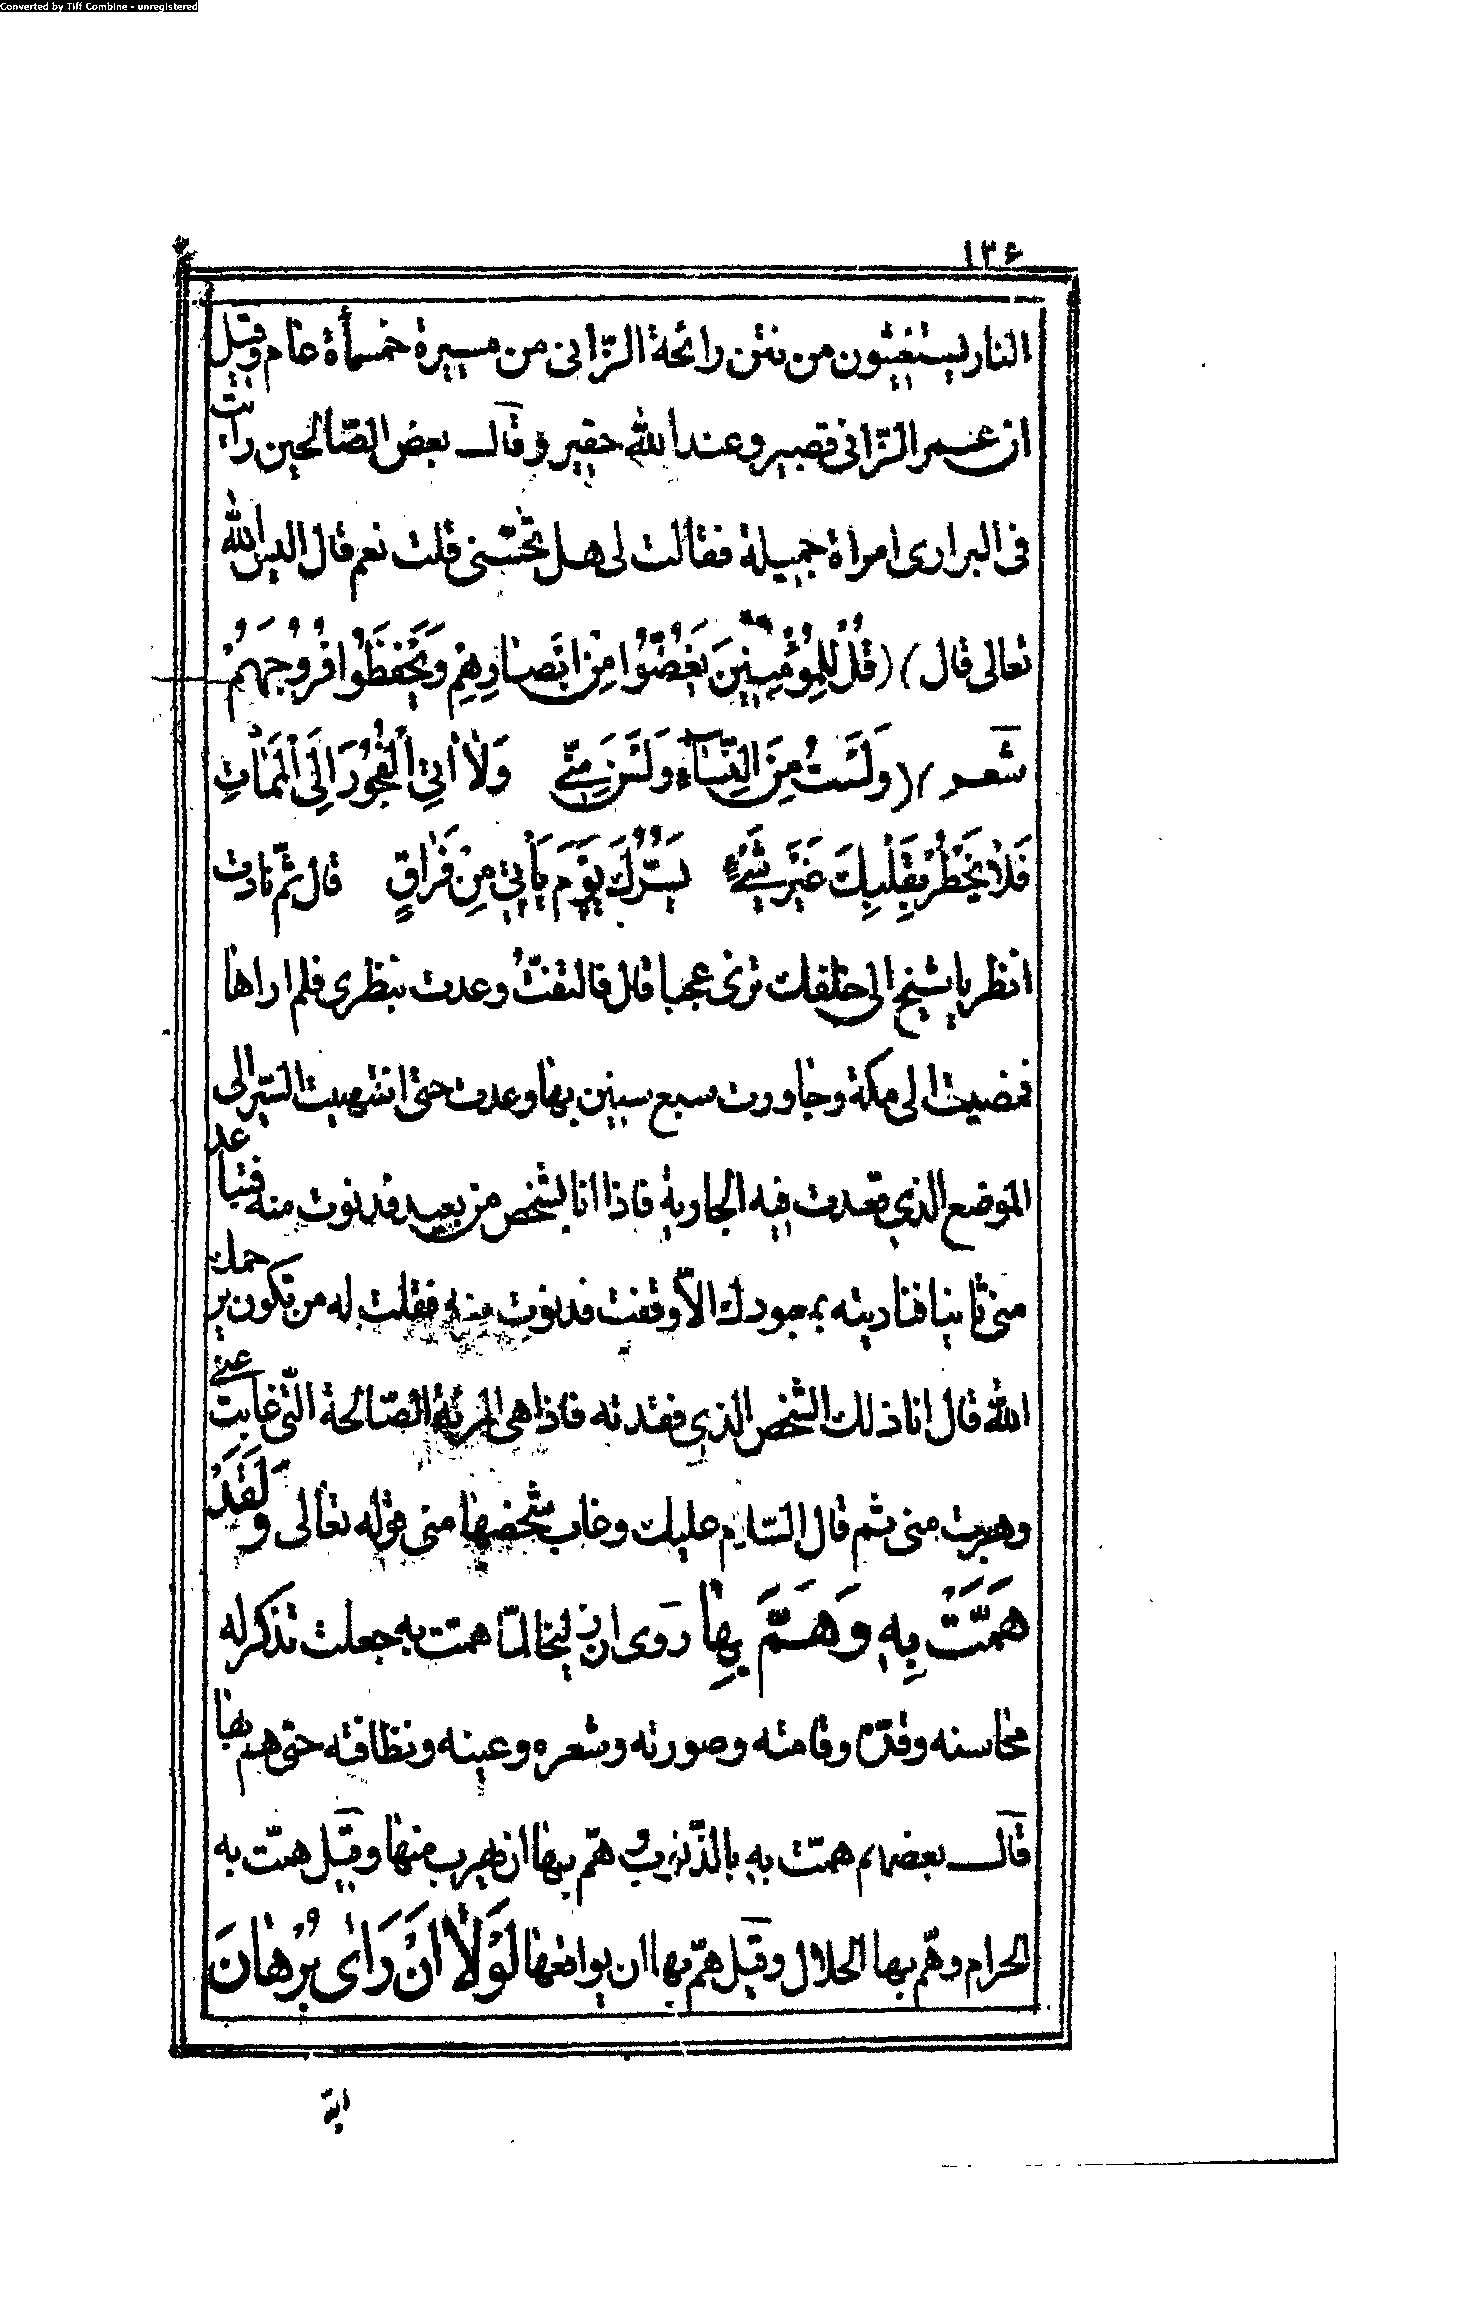 Converted by Tiff Combine - unregistered
١٣۶
النار يستغيثون من نتن رائحة الزّانى من مسيرة خمسمأة عام وقيل
ان عمر الزّانى قصير وعند الله حقير وقال بعض الصّالحين رايت
فى البرارى امراة جميلة فقالت لى هل تحبّنى قلت نعم قال اليس الله
تعالى قال (قُلْ لِلْمُؤْمِنِينَ يَغُضُّوا مِنْ ابْصارِهِمْ وَيَحْفَظُوا فُرُوجَهُمْ
شعر (وَلَسْتُ مِنَ النِّسَاءِ وَلَسْنَ مِنّى وَلاٰ اٰتِى الْفُجُورَ اِلَى الْمَمٰاتِ
فَلاٰ يَخْطُرْ بِقَلْبِكَ غَيْرَ شَىْءٍ يَسُرُّكَ يَوْمَ يَأْتِى مِنْ فَرٰاقٍ قال ثمّ نادت
انظر يا شيخ الى خلفك ترى عجبا قال فالتفتّ وعدت بنظرى فلم اراها
فمضيت الى مكة وجاورت سبع سنين بها وعدت حتى انتهيت السّير الى
الموضع الذي فقدت فيه الجارية فاذا انا بشخص من بعيد فدنوت منه فتباعد
منى تائبا فناديته بمعبودك الاّ وقفت فدنوت منه فقلت له من تكون يرحمك
الله قال انا ذلك الشخص الذي فقدته فاذا هى المرئة الصّالحة الّتى غابت عنّى
وهربت منى ثم قال السّلام عليك وغاب شخصها منى قوله تعالى وَلَقَدْ
هَمَّتْ بِهِ وَهَمَّ بِهٰا روى ان زليخا لمّا همت به جعلت تذكر له
محاسنه وقدّه وقامته وصورته وشعره وعينه ونظافته حتى هم بها
قال بعضهم همّت به بالذّنب وهمّ بها ان يهرب منها وقيل همّت به
الحرام وهمّ بها الحلال وقيل همّ بها ان يواقعها لَوْلاٰ انْ رَاٰى بُرْهٰانَ